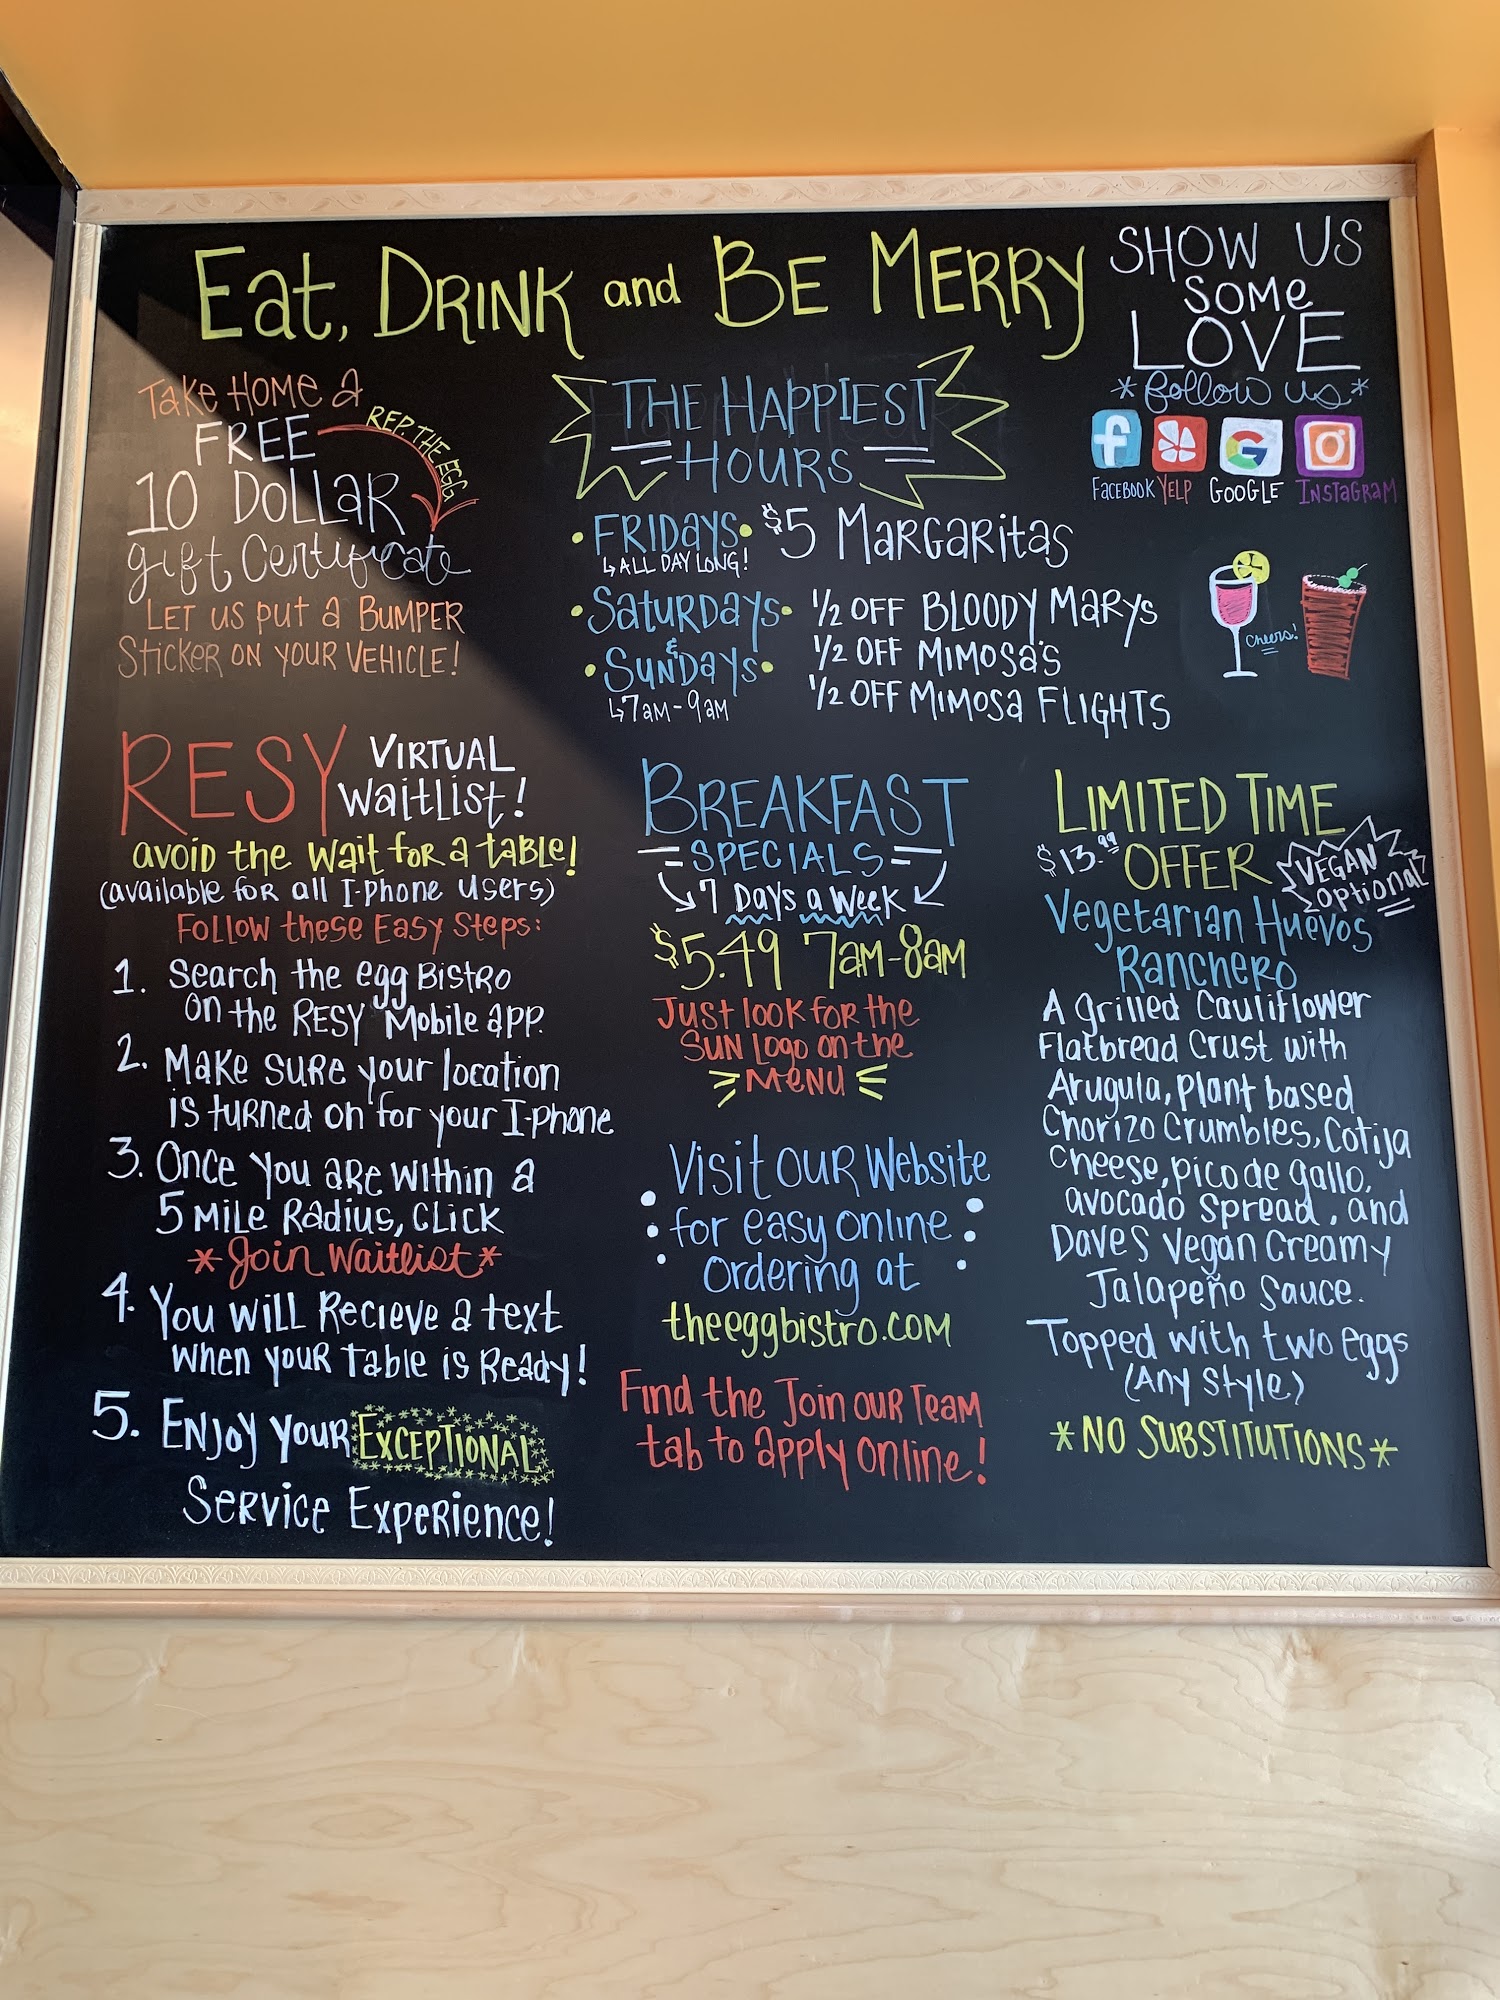 Eat, DRINK and BE MERRY
SHOW US
SOMe
LOVE
*follow us*
FACEBOOK YELP GOOGLE INSTAGRAM
Take HOMe a
FREE
10 DOLLAR
gift Certificate
REP. THE EGG
LET US PUT a BUMPER
STICKER ON YOUR VEHICLE!
THE HAPPIEST
HOURS
• FRIDAYS • $5 MARGARITAS
↳ ALL DAY LONG!
• SATURDAYS •
&
• SUNDAYS •
↳ 7AM - 9AM
1/2 OFF BLOODY MARYS
1/2 OFF MIMOSA'S
1/2 OFF MIMOSA FLIGHTS
Cheers!
RESY VIRTUAL
WaitLiST!
avoid the wait for a table!
(available for all I-phone users)
Follow these Easy Steps:
1. Search the egg Bistro
on the RESY Mobile app.
2. Make SURE your location
is turned on for your I-phone
3. Once you are within a
5 Mile Radius, CLICK
*Join Waitlist*
4. You will Recieve a text
when your table is Ready!
5. ENJOY YOUR EXCEPTIONAL
Service Experience!
BREAKFAST
SPECIALS
7 Days a Week
$5.49 7am-8am
Just look for the
SUN Logo on the
MENU
Visit our Website
for easy online
Ordering at
theeggbistro.com
Find the Join our Team
tab to apply online!
LIMITED TIME
$13.99 OFFER
VEGAN
optional
Vegetarian Huevos
Ranchero
A grilled Cauliflower
Flatbread Crust with
Arugula, plant based
Chorizo Crumbles, Cotija
cheese, pico de gallo,
avocado spread, and
Daves Vegan Creamy
Jalapeño Sauce.
Topped with two eggs
(Any Style)
*NO SUBSTITUTIONS*